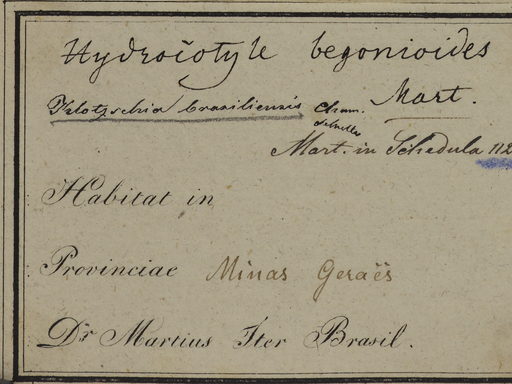 Hydrocotyle begonioides
Mart.
Klotzschia brasiliensis Cham.
Mart. in Schedula 112
Habitat in
Provinciae Minas Geraës
Dr Martius Iter Brasil.